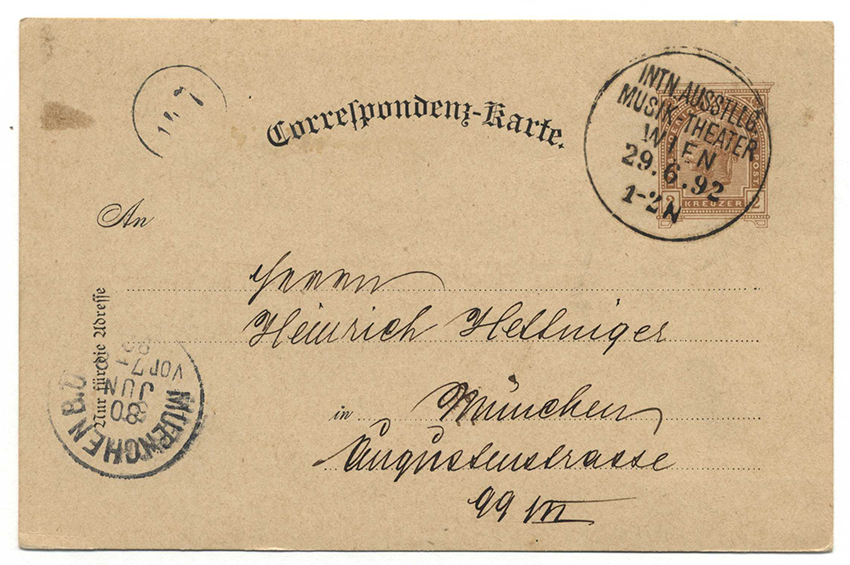 Correspondenz-Karte.
INTN. AUSSTLLG.
MUSIK-THEATER
WIEN
29.6.92
1-2N
KREUZER 2
POST
An
Herrn
Heinrich Hettniger
in München
Augustenstrasse
99 III
Nur für die Adresse
MUENCHEN B.
30
JUN
VOR 7